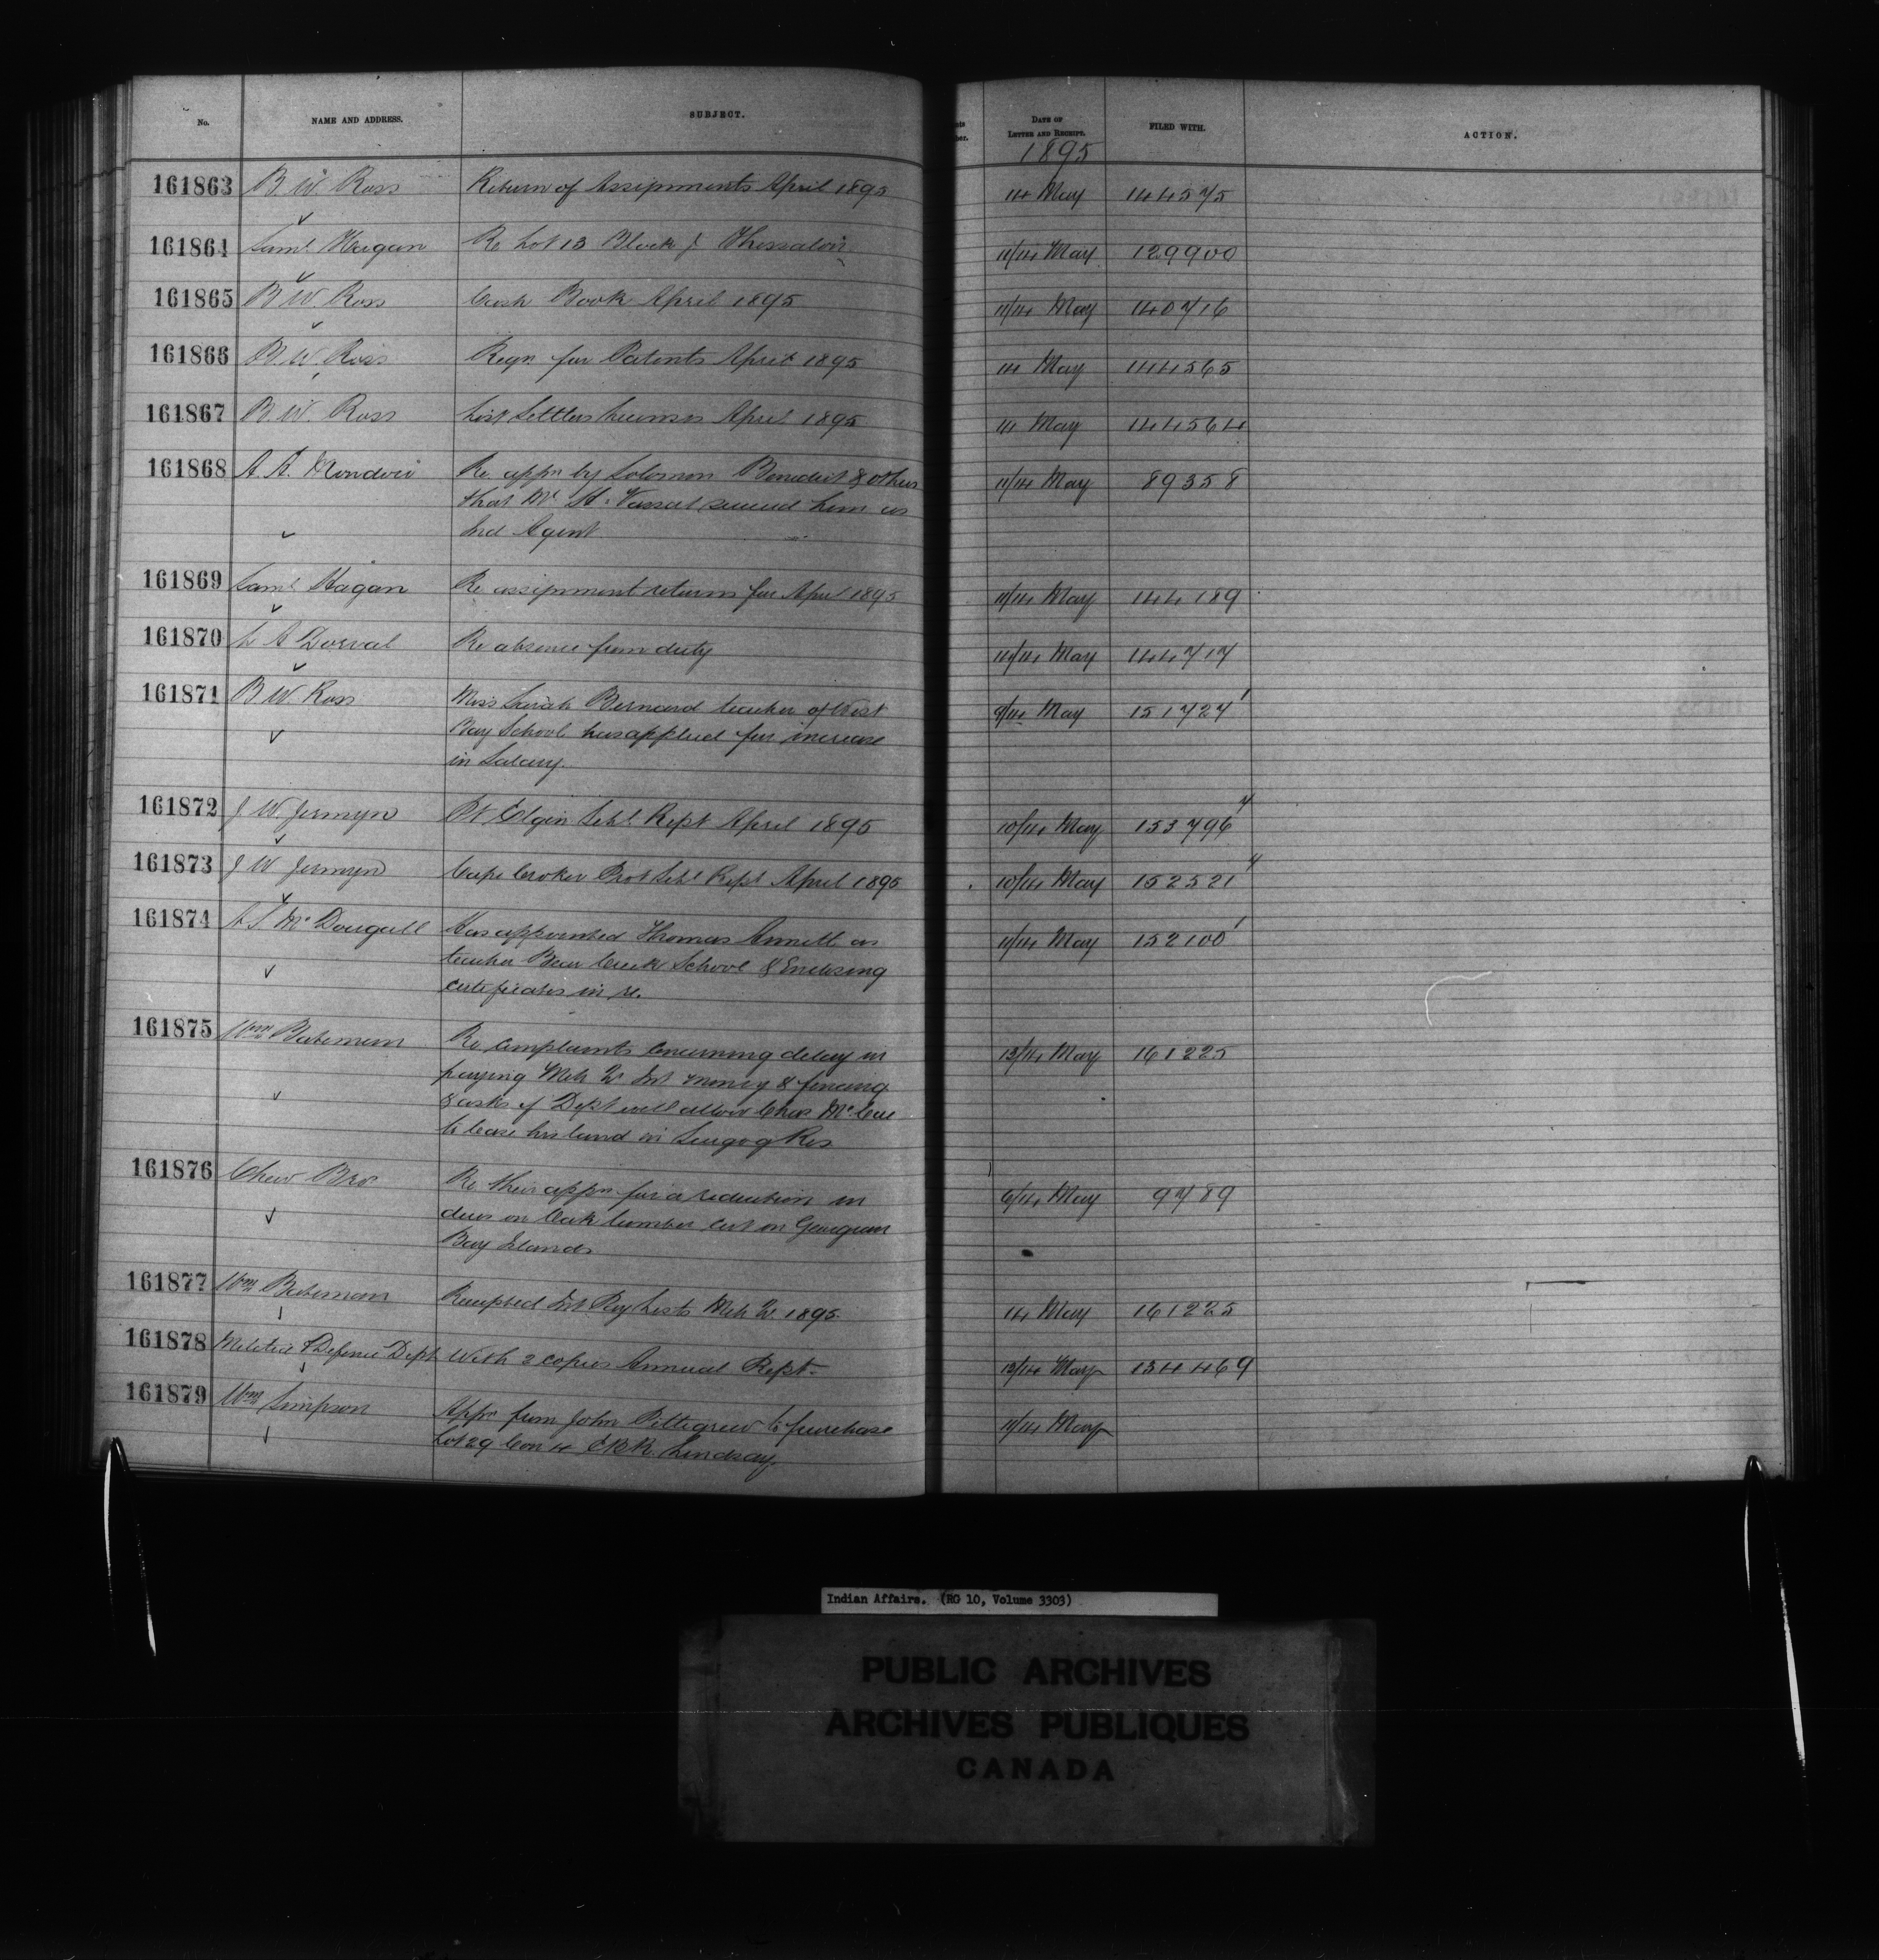 No. NAME AND ADDRESS. SUBJECT. DATE OF LETTER AND RECEIPT. FILED WITH. ACTION.
1895
161863 B. W. Ross Return of Assignments April 1895 14 May 144575
161864 Saml Hagan Re Lot 13 Block J Thessalon 11/14 May 129900
161865 B W Ross Cash Book April 1895 11/14 May 140716
161866 B. W. Ross Regn for Patents April 1895 14 May 144565
161867 B. W. Ross List Settlers Licenses April 1895 14 May 144564
161868 A. A. Mondou Re appn by Solomon Benedict & others 11/14 May 89358
that Mr. H. Vassal succeed him as
Ind Agent
161869 Saml Hagan Re assignment returns for April 1895 11/14 May 144189
161870 A Dorval Re absence from duty 14 May 144717
161871 B W. Ross Miss Sarah Bernard teacher of West 9/14 May 151727 1
Bay School has applied for increase
in Salary.
161872 J W Jermyn Pt Elgin Schl Rept April 1895 10/14 May 153796 7
161873 J W Jermyn Cape Croker Prot Schl Rept April 1895 10/14 May 152521 4
161874 A S McDougall Has appointed Thomas Annett as 11/14 May 152100 1
teacher Bear Creek School & Enclosing
certificates in re.
161875 Wm Bateman Re complaints concerning delay in 13/14 May 161225
paying Mch Qr Int money & fencing
& asks if Dept will allow Chas McCue
to lease his land in Scugog Res
161876 Chew Bro Re their appn for a reduction in 6/14 May 9789
dues on Oak lumber cut on Georgian
Bay Islands
161877 Wm Bateman Receipted Int Pay Lists Mch Qr. 1895. 14 May 161225
161878 Militia & Defence Dept With 2 copies Annual Rept. 13/14 May 134469
161879 Wm Simpson Appn from John Pettigrew to purchase 11/14 May
Lot 29 Con 4 E.B.R. Lindsay.
Indian Affairs. (RG 10, Volume 3303)
PUBLIC ARCHIVES
ARCHIVES PUBLIQUES
CANADA